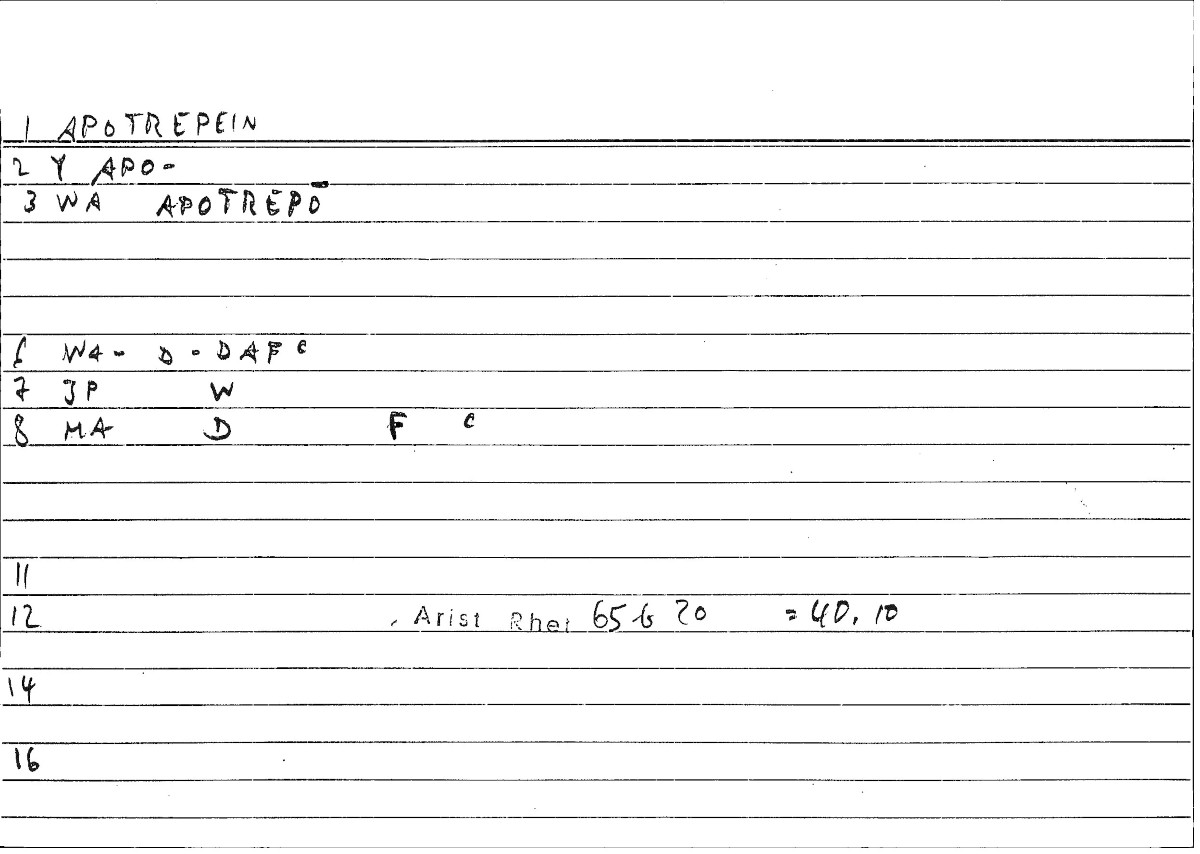 1 APOTREPEIN
2 Y APO-
3 WA APOTREPŌ
6 WA- D-DAF C
7 JP W
8 MA D F C
11
12 , Arist Rhet 65 b 20 = 40, 10
14
16